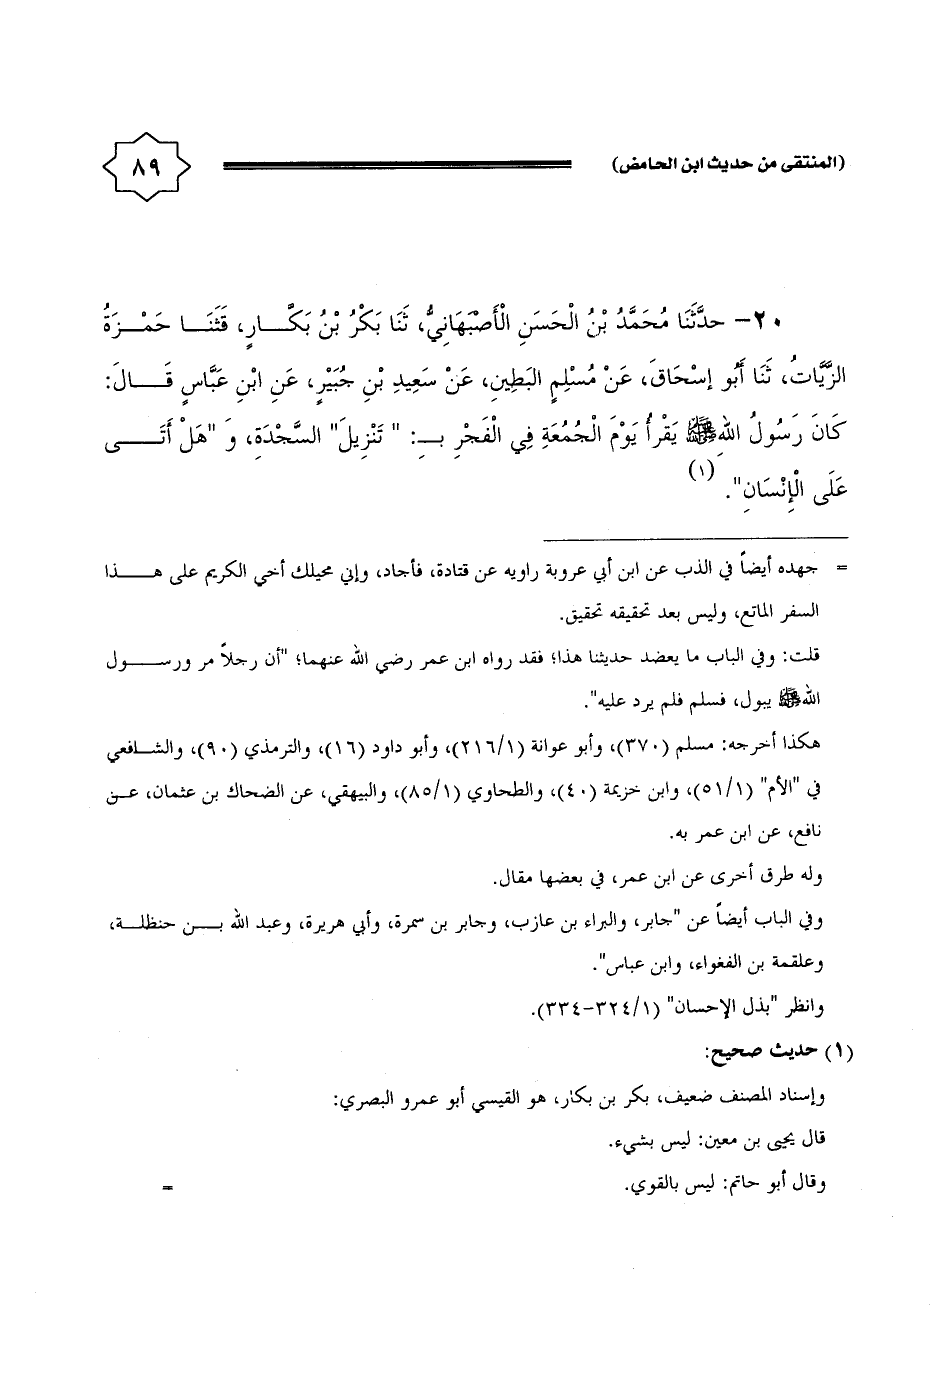 (المنتقى من حديث ابن الحامض) ٨٩
٢٠- حدَّثَنَا مُحَمَّدُ بْنُ الْحَسَنِ الْأَصْبَهَانِيُّ، ثَنَا بَكْرُ بْنُ بَكَّـــارٍ، قَثَنَـــا حَمْـــزَةُ
الزَّيَّاتُ، ثَنَا أَبُو إِسْحَاقَ، عَنْ مُسْلِمٍ البَطِينِ، عَنْ سَعِيدِ بْنِ جُبَيْرٍ، عَنِ ابْنِ عَبَّاسٍ قَـــالَ:
كَانَ رَسُولُ اللهِ ﷺ يَقْرَأُ يَوْمَ الْجُمُعَةِ فِي الْفَجْرِ بـــِ: " تَنْزِيلَ" السَّجْدَةِ، وَ "هَلْ أَتَـــى
عَلَى الْإِنْسَانِ". (١)
= جهده أيضاً في الذب عن ابن أبي عروبة راويه عن قتادة، فأجاد، وإني محيلك أخي الكريم على هـــذا
السفر الماتع، وليس بعد تحقيقه تحقيق.
قلت: وفي الباب ما يعضد حديثنا هذا؛ فقد رواه ابن عمر رضي الله عنهما؛ "أن رجلاً مر ورســـول
الله ﷺ يبول، فسلم فلم يرد عليه".
هكذا أخرجه: مسلم (٣٧٠)، وأبو عوانة (٢١٦/١)، وأبو داود (١٦)، والترمذي (٩٠)، والشـافعي
في "الأم" (٥١/١)، وابن خزيمة (٤٠)، والطحاوي (٨٥/١)، والبيهقي، عن الضحاك بن عثمان، عـن
نافع، عن ابن عمر به.
وله طرق أخرى عن ابن عمر، في بعضها مقال.
وفي الباب أيضاً عن "جابر، والبراء بن عازب، وجابر بن سمرة، وأبي هريرة، وعبد الله بـــن حنظلـــة،
وعلقمة بن الفغواء، وابن عباس".
وانظر "بذل الإحسان" (٣٢٤/١-٣٣٤).
(١) حديث صحيح:
وإسناد المصنف ضعيف، بكر بن بكار، هو القيسي أبو عمرو البصري:
قال يحيى بن معين: ليس بشيء.
وقال أبو حاتم: ليس بالقوي. =